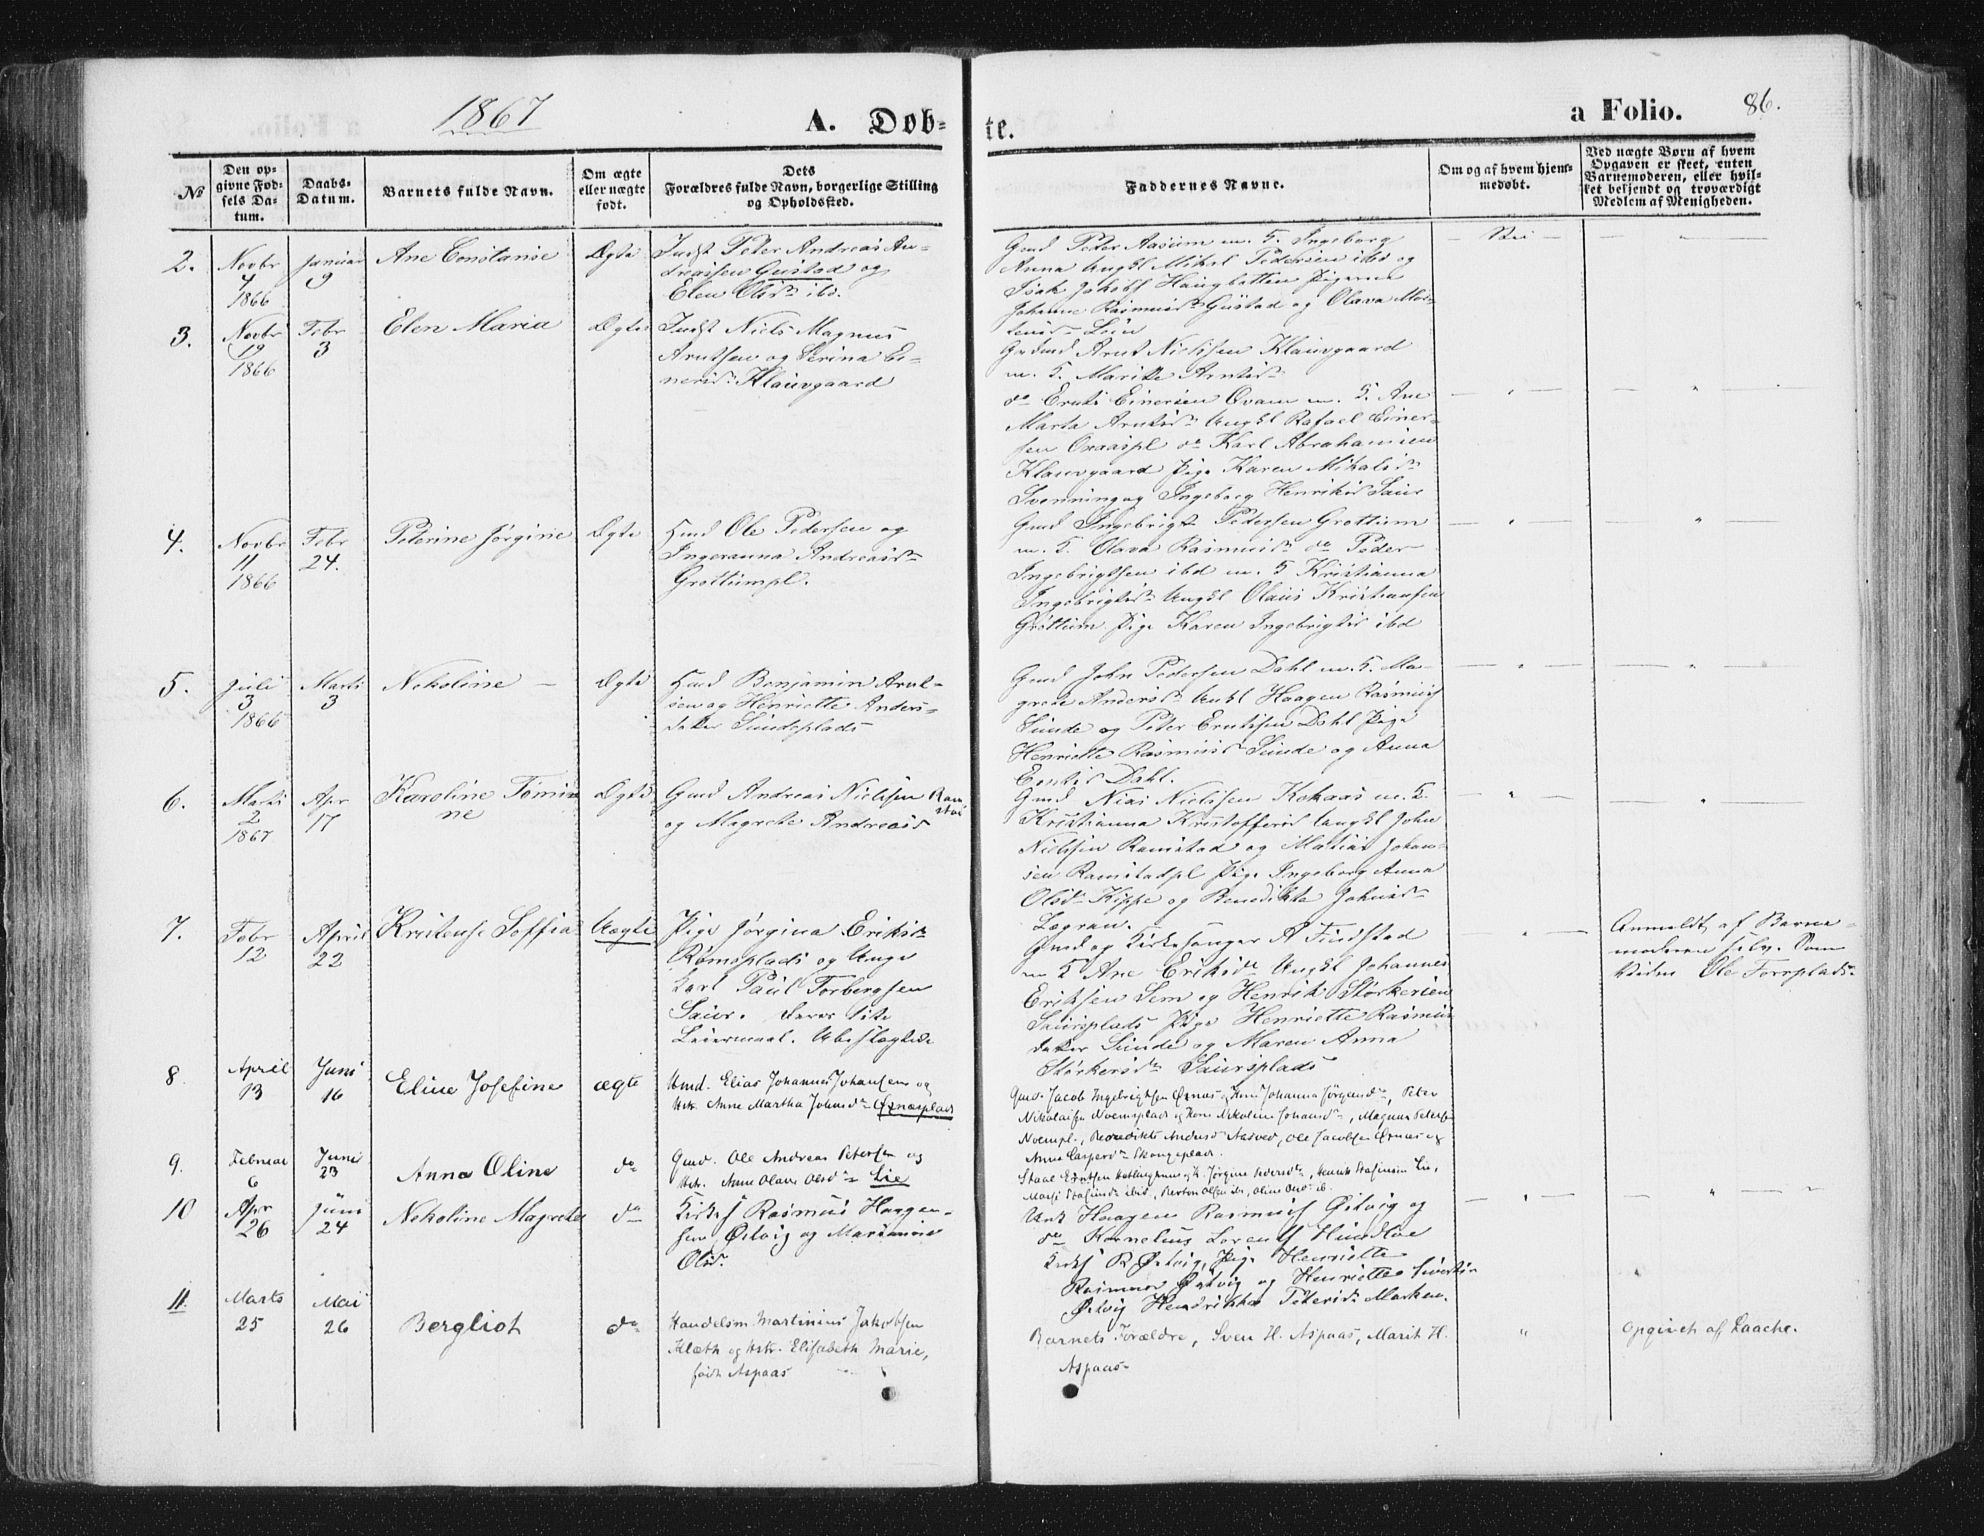 1867
A. Døb-
te.
a Folio.
86.
№
Den op-
givne Fød-
sels Da-
tum.
Daabs-
Datum.
Barnets fulde Navn.
Om ægte
eller uægte
født.
Dets
Forældres fulde Navn, borgerlige Stilling
og Opholdssted.
Faddernes Navne.
Om og af hvem hjem-
medøbt.
Ved uægte Børn af hvem
Opgaven er skeet, enten
Barnemoderen, eller hvil-
ket bekjendt og troværdigt
Medlem af Menigheden.
2.
Novbr
4
1866
Januar
9
Ane Constanse
Ægte
Indst Peter Andreas An-
dreassen Gustad og
Elen Olsdr ibd.
Gmd Peder Aasum m. K. Ingeborg
Anna Ungkl Mikel Pedersen ibd og
Isak Jakobs Haugbatten Pigerne
Johanna Rasmusdr Gustad og Olava Mor-
tensdr Lein
Nei
3.
Novbr
19
1866
Febr
3
Elen Maria
Ægte
Indst Niels Magnus
Arntsen og Serina Ei-
nersdr Klauvgaard
Gaardmd Arnt Nielssen Klauvgaard
m. K. Maritte Arntsdr
do Ernts Einersen Qvam m. K. Ane
Marta Arntsdr Ungkl Rafael Einer-
sen Qvaaspl do Karl Abrahamsen
Klauvgaard Pige Karen Mikalsdr
Svenning og Ingeborg Henriksd Saur
4.
Novbr
11
1866
Febr
24.
Peterine Jørgine
Ægte
Husmd Ole Pedersen og
Ingeranna Andreasdr
Grøttumpl.
Gmd Ingebrigt Pedersen Grøttum
m. K. Olava Rasmusdr do Peder
Ingebrigtsen ibd m. K Kristianna
Ingebrigtsdr Ungkl Olaus Kristiansen
Grøttum Pige Karen Ingebrigtsd ibd
5.
Juli
3
1866
Marts
3
Nekoline
Ægte
Husmd Benjamin Arnt-
sen og Henriette Anders-
datter Sundsplads
Gmd John Pedersen Dahl m. K. Ma-
grete Andersd Ungkl Haagen Rasmus
Sunde og Peter Erntssen Dahl Pige
Henriette Rasmusd Sunde og Anna
Erntsd Dahl.
6.
Marts
2
1867
Apr
17
Karoline Tomi-
ne
Ægte
Gmd Andreas Nielssen Ram-
stad
og Magrete Andreasd
Gmd Nias Nielssen Kokaas m. K.
Kristianna Kristoffersd Ungkl John
Nielssen Ramstad og Matias Johan-
sen Ramstadpl Pige Ingeborg Anna
Olsdr Kippe og Benedikta Johnsdr
Lagran.
7.
Febr
12
April
22
Kristense Soffia
Uægte
Pige Jørgina Eriksdr
Rømoplads og Unge
Karl Paul Torbergsen
Saur. Deres 1ste
Leiermaal. Ubeslægtede
Gmd og Kirkesanger A Findstad
m K Ane Eriksdr Ungkl Johannes
Eriksen Sem og Henrik Størkersen
Saursplads Pige Henriette Rasmus-
datter Sunde og Maren Anna
Størkersdr Saursplads
Anmeldt af Barne-
moderen selv. Som
Vidne Ole Forrplads.
8
April
13
Juni
16
Eline Josefine
ægte
Hmd. Elias Johannes Johansen og
Hstr. Anne Martha Johnsdr Øznesplads
Gmd. Jacob Ingebrigtsen Øznes og Kone Johanna Jørgensdr, Peter
Nikolaisen Noemsplads og Kone Nikoline Johansdr, Magnus Peterse
Noempl., Benedikte Andersd Aasved, Ole Jacobsen Øznes og
Anne Caspersdr Skougeplads.
9.
Februar
6
Juni
23
Anna Oline
do
Gmd. Ole Andreas Petersen og
Hstr. Anne Olava Olsdr Lie
Marsi ibid., Oline Olsdr ib.
10
Apr
26
Juni
24
Nekoline Magrete
do
Kirkes Rasmus Haagen-
sen Østvig og Marianne
Olsd.
Unk Haagen Rasmus Østvig og
do Kornelius Lorents Hundloe
Kirks R. Østvig, Pige Henriette
Rasmusd Østvig og Henriette Sivertsdr
Østvig Hendrikka Petersdr Marken.
11.
Marts
25
Mai
26
Bergliot
do
Handelsm. Martinius Jakobsen
Klæth og Hstr. Elisabeth Marie,
født Aspaas
Barnets Forældre, Sven H. Aspaas, Marit H.
Aspaas.
Opgivet af Laache.